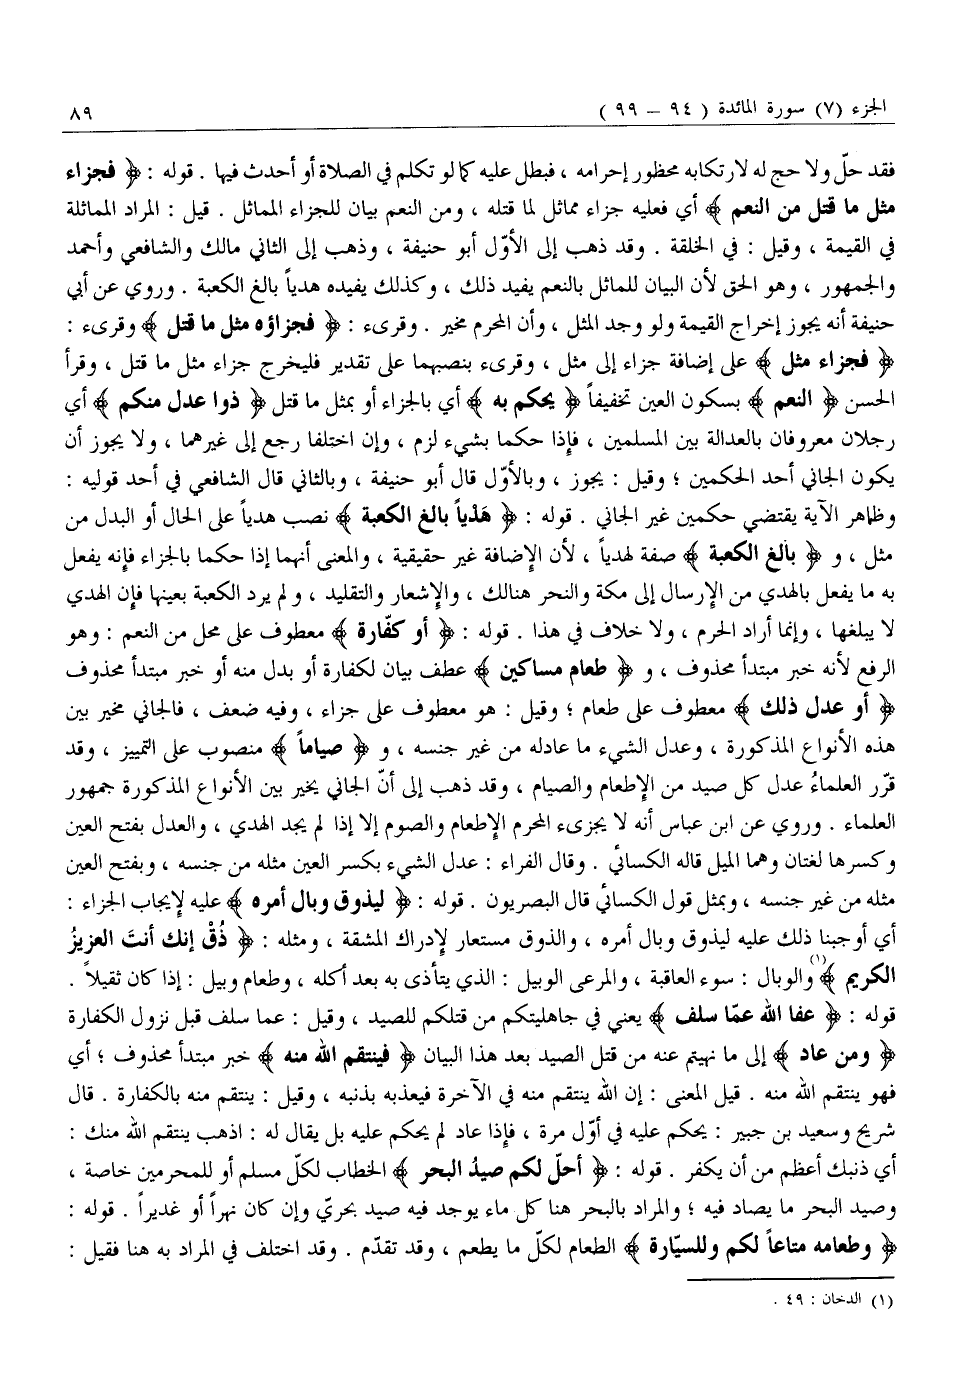 الجزء (٧) سورة المائدة ( ٩٤ – ٩٩ ) ٨٩
فقد حلّ ولا حج له لارتكابه محظور إحرامه ، فبطل عليه كما لو تكلم في الصلاة أو أحدث فيها . قوله : ﴿ فجزاء
مثل ما قتل من النعم ﴾ أي فعليه جزاء مماثل لما قتله ، ومن النعم بيان للجزاء المماثل . قيل : المراد المماثلة
في القيمة ، وقيل : في الخلقة . وقد ذهب إلى الأوّل أبو حنيفة ، وذهب إلى الثاني مالك والشافعي وأحمد
والجمهور ، وهو الحق لأن البيان للماثل بالنعم يفيد ذلك ، وكذلك يفيده هدياً بالغ الكعبة . وروي عن أبي
حنيفة أنه يجوز إخراج القيمة ولو وجد المثل ، وأن المحرم مخير . وقرىء : ﴿ فجزاؤه مثل ما قتل ﴾ وقرىء :
﴿ فجزاء مثل ﴾ على إضافة جزاء إلى مثل ، وقرىء بنصبهما على تقدير فليخرج جزاء مثل ما قتل ، وقرأ
الحسن ﴿ النعم ﴾ بسكون العين تخفيفاً ﴿ يحكم به ﴾ أي بالجزاء أو بمثل ما قتل ﴿ ذوا عدل منكم ﴾ أي
رجلان معروفان بالعدالة بين المسلمين ، فإذا حكما بشيء لزم ، وإن اختلفا رجع إلى غيرهما ، ولا يجوز أن
يكون الجاني أحد الحكمين ؛ وقيل : يجوز ، وبالأوّل قال أبو حنيفة ، وبالثاني قال الشافعي في أحد قوليه :
وظاهر الآية يقتضي حكمين غير الجاني . قوله : ﴿ هَدْياً بالغ الكعبة ﴾ نصب هدياً على الحال أو البدل من
مثل ، و ﴿ بالغ الكعبة ﴾ صفة لهدياً ، لأن الإضافة غير حقيقية ، والمعنى أنهما إذا حكما بالجزاء فإنه يفعل
به ما يفعل بالهدي من الإرسال إلى مكة والنحر هنالك ، والإشعار والتقليد ، ولم يرد الكعبة بعينها فإن الهدي
لا يبلغها ، وإنما أراد الحرم ، ولا خلاف في هذا . قوله : ﴿ أو كفّارة ﴾ معطوف على محل من النعم : وهو
الرفع لأنه خبر مبتدأ محذوف ، و ﴿ طعام مساكين ﴾ عطف بيان لكفارة أو بدل منه أو خبر مبتدأ محذوف
﴿ أو عدل ذلك ﴾ معطوف على طعام ؛ وقيل : هو معطوف على جزاء ، وفيه ضعف ، فالجاني مخير بين
هذه الأنواع المذكورة ، وعدل الشيء ما عادله من غير جنسه ، و ﴿ صياماً ﴾ منصوب على التمييز ، وقد
قرّر العلماءُ عدل كل صيد من الإطعام والصيام ، وقد ذهب إلى أنّ الجاني يخير بين الأنواع المذكورة جمهور
العلماء . وروي عن ابن عباس أنه لا يجزىء المحرم الإطعام والصوم إلا إذا لم يجد الهدي ، والعدل بفتح العين
وكسرها لغتان وهما الميل قاله الكسائي . وقال الفراء : عدل الشيء بكسر العين مثله من جنسه ، وبفتح العين
مثله من غير جنسه ، وبمثل قول الكسائي قال البصريون . قوله : ﴿ ليذوق وبال أمره ﴾ عليه لإيجاب الجزاء :
أي أوجبنا ذلك عليه ليذوق وبال أمره ، والذوق مستعار لإدراك المشقة ، ومثله : ﴿ ذُقْ إنك أنتَ العزيزُ
الكريم ﴾(١) والوبال : سوء العاقبة ، والمرعى الوبيل : الذي يتأذى به بعد أكله ، وطعام وبيل : إذا كان ثقيلاً .
قوله : ﴿ عفا الله عمّا سلف ﴾ يعني في جاهليتكم من قتلكم للصيد ، وقيل : عما سلف قبل نزول الكفارة
﴿ ومن عاد ﴾ إلى ما نهيتم عنه من قتل الصيد بعد هذا البيان ﴿ فينتقم الله منه ﴾ خبر مبتدأ محذوف ؛ أي
فهو ينتقم الله منه . قيل المعنى : إن الله ينتقم منه في الآخرة فيعذبه بذنبه ، وقيل : ينتقم منه بالكفارة . قال
شريح وسعيد بن جبير : يحكم عليه في أوّل مرة ، فإذا عاد لم يحكم عليه بل يقال له : اذهب ينتقم الله منك :
أي ذنبك أعظم من أن يكفر . قوله : ﴿ أحلّ لكم صيدُ البحر ﴾ الخطاب لكلّ مسلم أو للمحرمين خاصة ،
وصيد البحر ما يصاد فيه ؛ والمراد بالبحر هنا كل ماء يوجد فيه صيد بحريّ وإن كان نهراً أو غديراً . قوله :
﴿ وطعامه متاعاً لكم وللسيّارة ﴾ الطعام لكلّ ما يطعم ، وقد تقدّم . وقد اختلف في المراد به هنا فقيل :
(١) الدخان : ٤٩ .